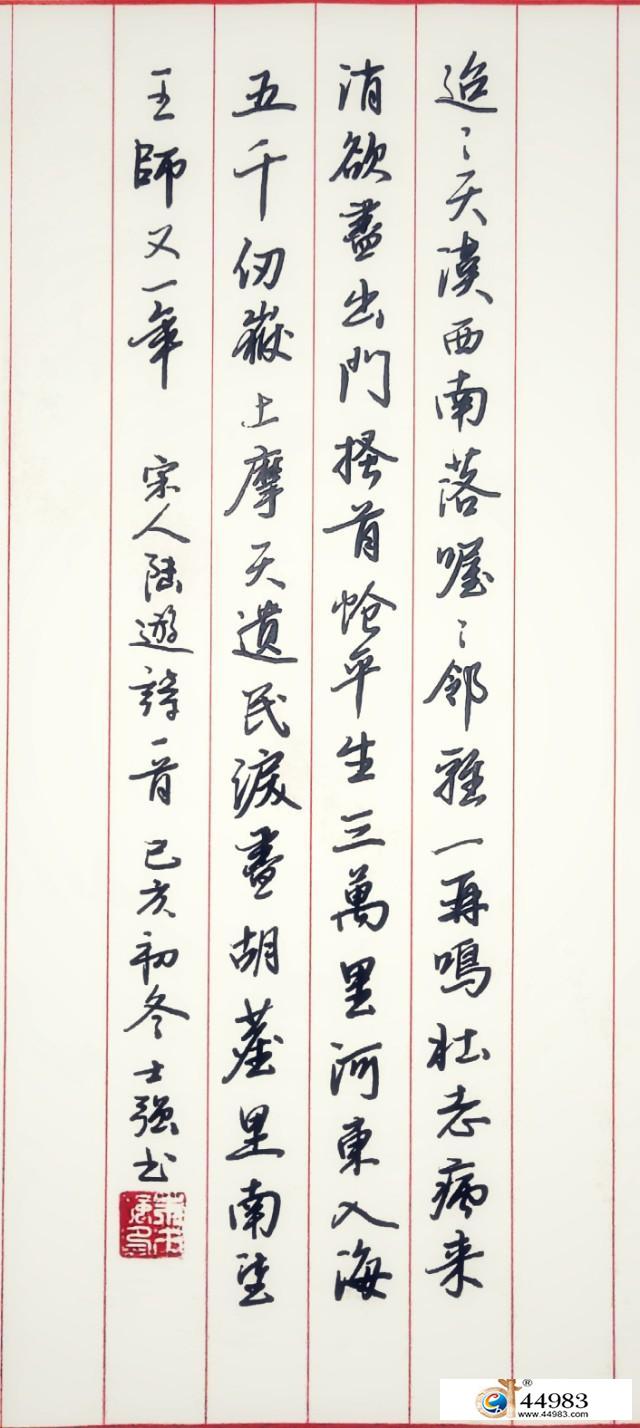 迢〻天漢西南落喔〻鄰雞一再鳴壮志病来
消欲盡出門搔首愴平生三萬里河東入海
五千仞嶽上摩天遺民淚盡胡塵里南望
王師又一年 宋人陸遊詩一首 己亥初冬士强书
®44983
www.44983.com